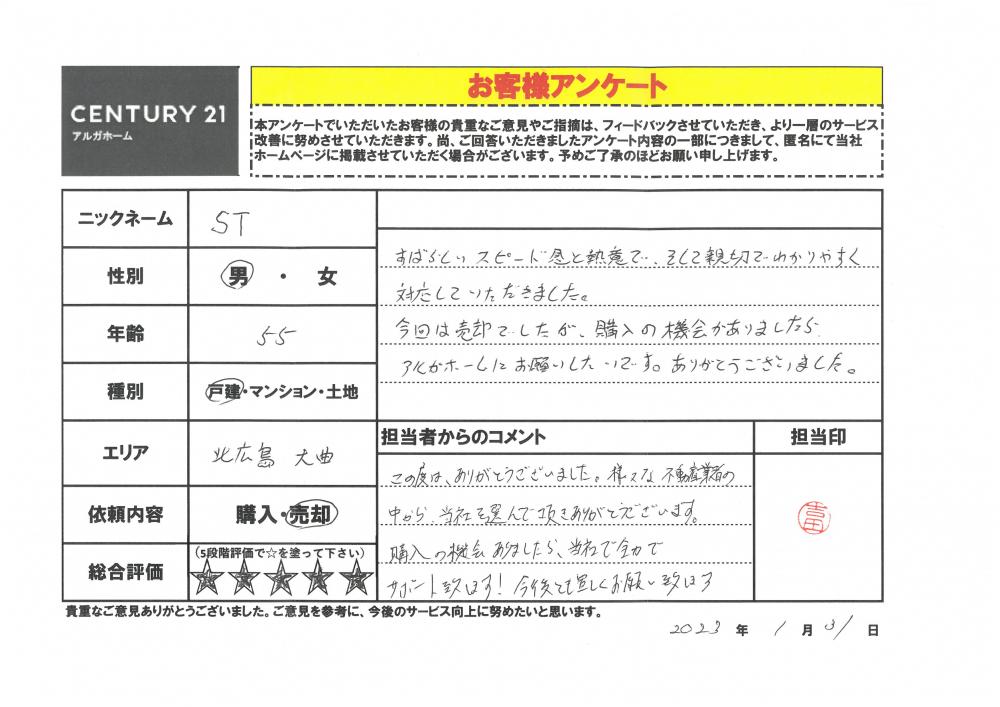 CENTURY 21
アルガホーム
お客様アンケート
本アンケートでいただいたお客様の貴重なご意見やご指摘は、フィードバックさせていただき、より一層のサービス
改善に努めさせていただきます。尚、ご回答いただきましたアンケート内容の一部につきまして、匿名にて当社
ホームページに掲載させていただく場合がございます。予めご了承のほどお願い申し上げます。
ニックネーム ST
性別 男 ・ 女
年齢 55
種別 戸建・マンション・土地
エリア 北広島 大曲
依頼内容 購入・売却
総合評価 (5段階評価で☆を塗って下さい)
★★★★★
すばらしいスピード感と熱意で、そして親切でわかりやすく
対応していただきました。
今回は売却でしたが、購入の機会がありましたら
アルガホームにお願いしたいです。ありがとうございました。
担当者からのコメント
この度は、ありがとうございました。様々な不動産業者の
中から、当社を選んで頂きありがとうございます。
購入の機会ありましたら、当社で全力で
サポート致します!今後とも宜しくお願い致します
担当印
吉田
貴重なご意見ありがとうございました。ご意見を参考に、今後のサービス向上に努めたいと思います。
2023 年 1 月 31 日